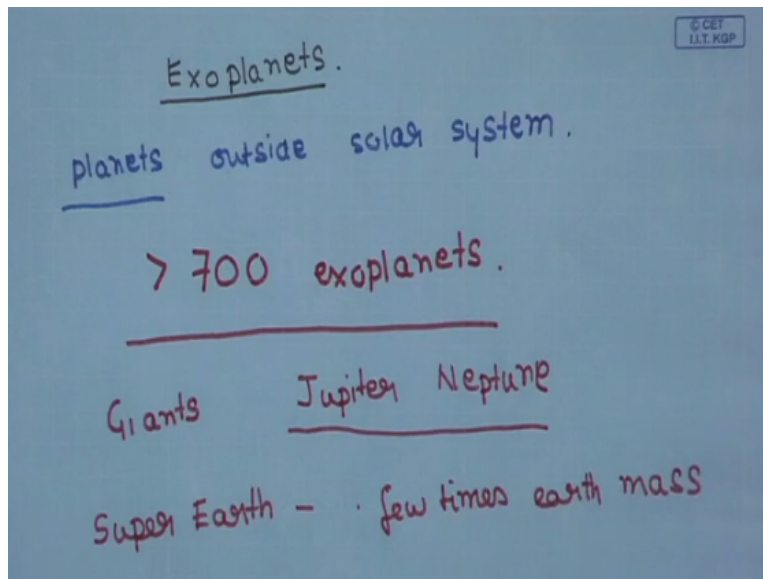 © CET
I.I.T. KGP
Exoplanets.
planets outside solar system.
> 700 exoplanets.
Giants Jupiter Neptune
Super Earth - . few times earth mass